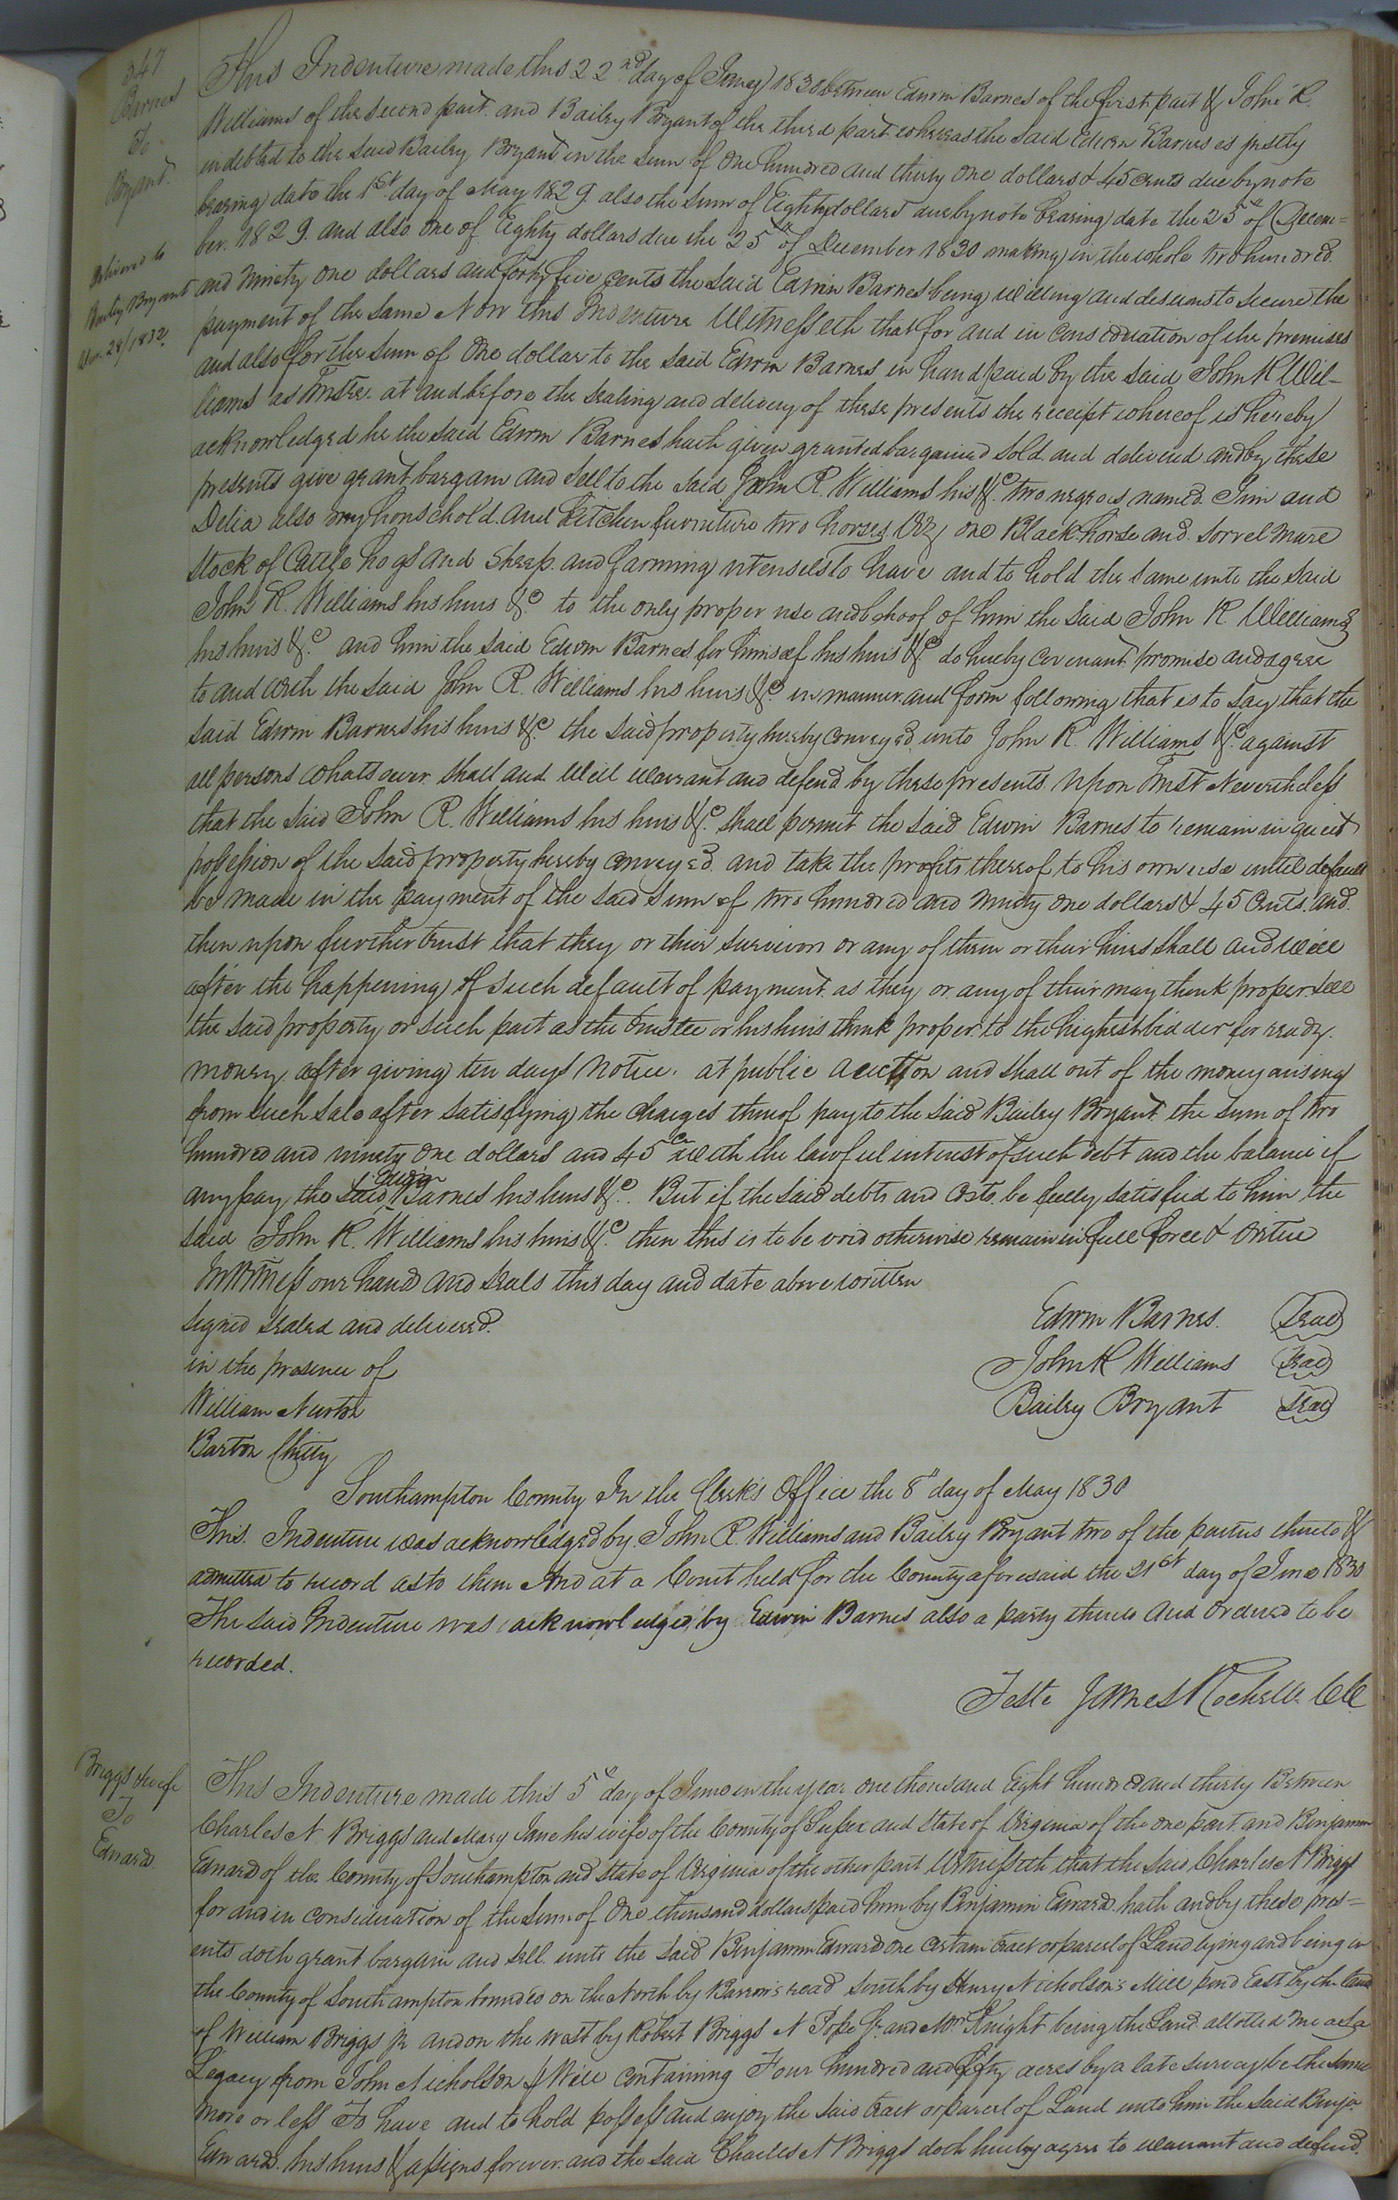 347
Barnes
To
Bryant.
Delivered to
Bailey Bryant
Nov. 28/1832.
This Indenture made this 22nd day of 1830 between Edwin Barnes of the first part & John R.
Williams of the second part and Bailey Bryant of the third part whereas the said Edwin Barnes is justly
indebted to the said Bailey Bryant in the sum of One hundred and thirty one dollars & 45 cents due by note
bearing date the 1st day of May 1829. also the sum of Eighty dollars due by note bearing date the 25th of Decem=
ber. 1829. and also one of Eighty dollars due the 25th of December 1830 making in the whole two hundred
and ninety one dollars and forty five cents the said Edwin Barnes being willing and desirous to secure the
payment of the same Now this Indenture Witnesseth that for and in consideration of the premises
and also for the sum of One dollar to the said Edwin Barnes in hand paid by the said John R Wil-
liams as Trustee at and before the sealing and delivery of these presents the receipt whereof is hereby
acknowledged he the said Edwin Barnes hath given granted bargained sold and delivered and by these
presents give grant bargain and sell to the said John R. Williams his &c two negroes named Jim and
Delia also my household and Kitchen furniture two horses Viz, one Black horse and sorrel mare
Stock of Cattle hogs and Sheep. and farming utensels to have and to hold the same unto the said
John R. Williams his heirs &c to the only proper use and behoof of him the said John R Williams
his heirs &c. and him the said Edwin Barnes for himself his heirs &c do hereby covenant promise and agree
to and with the said John R. Williams his heirs &c. in manner and form following that is to say that the
said Edwin Barnes his heirs &c. the said property hereby conveyed unto John R. Williams &c. against
all persons whatsoever shall and will warrant and defend by these presents upon Trust Nevertheless
that the said John R. Williams his heirs &c. shall permit the said Edwin Barnes to remain in quiet
possession of the said property hereby conveyed and take the profits thereof to his own use until default
be made in the payment of the said sum of two hundred and ninety one dollars & 45 Cents. and
then upon further trust that they or their survivors or any of them or their heirs shall and will
after the happening of such default of payment as they or any of their may think proper sell
the said property or such part as the trustee or his heirs think proper to the highest bidder for ready
money after giving ten days notice. at public auction and shall out of the money arising
from such sale after satisfying the charges thereof pay to the said Bailey Bryant the sum of two
hundred and ninety one dollars and 45 c with the lawful interest of such debt and the balance if
any pay the said Edwin Barnes his heirs &c. But if the said debts and costs be fully satisfied to him the
said John R. Williams his heirs &c. then this is to be void otherwise remain in full force & virtue
In Witness our hand and seals this day and date above written
signed sealed and delivered.
in the presence of
William Newton
Barton Chitty
Edwin Barnes. Seal
John R Williams Seal
Bailey Bryant Seal
Southampton County In the Clerk's Office the 8th day of May 1830
This Indenture was acknowledged by John R. Williams and Bailey Bryant two of the parties thereto &
admitted to record as to them And at a Court held for the County aforesaid the 21st day of June 1830
The said Indenture was acknowledged by Edwin Barnes also a party thereto and ordered to be
recorded.
Teste James Rochelle CC
Briggs & wife
To
Edwards
This Indenture made this 5th day of June in the year one thousand Eight hundred and thirty Between
Charles N Briggs and Mary Jane his wife of the County of Sussex and State of Virginia of the one part and Benjamin
Edwards of the County of Southampton and State of Virginia of the other part Witnesseth that the said Charles N Briggs
for and in consideration of the sum of One thousand dollars paid him by Benjamin Edwards hath and by these pres=
ents doth grant bargain and sell unto the said Benjamin Edwards one certain tract or parcel of Land lying and being in
the County of Southampton bounded on the North by Barron's road south by Henry Nicholson's Mill pond East by the land
of William Briggs jr and on the west by Robert Briggs N Pope Jr. and Mrs Knight being the Land allotted me as a
Legacy from John Nicholson Will containing Four hundred and fifty acres by a late survey be the same
more or less To have and to hold possess and enjoy the said tract or parcel of Land unto him the said Benja
Edwards. his heirs & assigns forever. and the said Charles N Briggs doth hereby agree to warrant and defend.